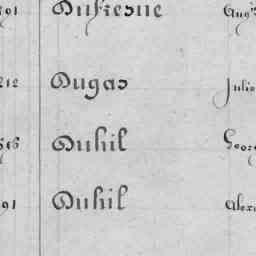 Dufresne Aug
Dugas Julie
Duhil Georg
91 Duhil Alex